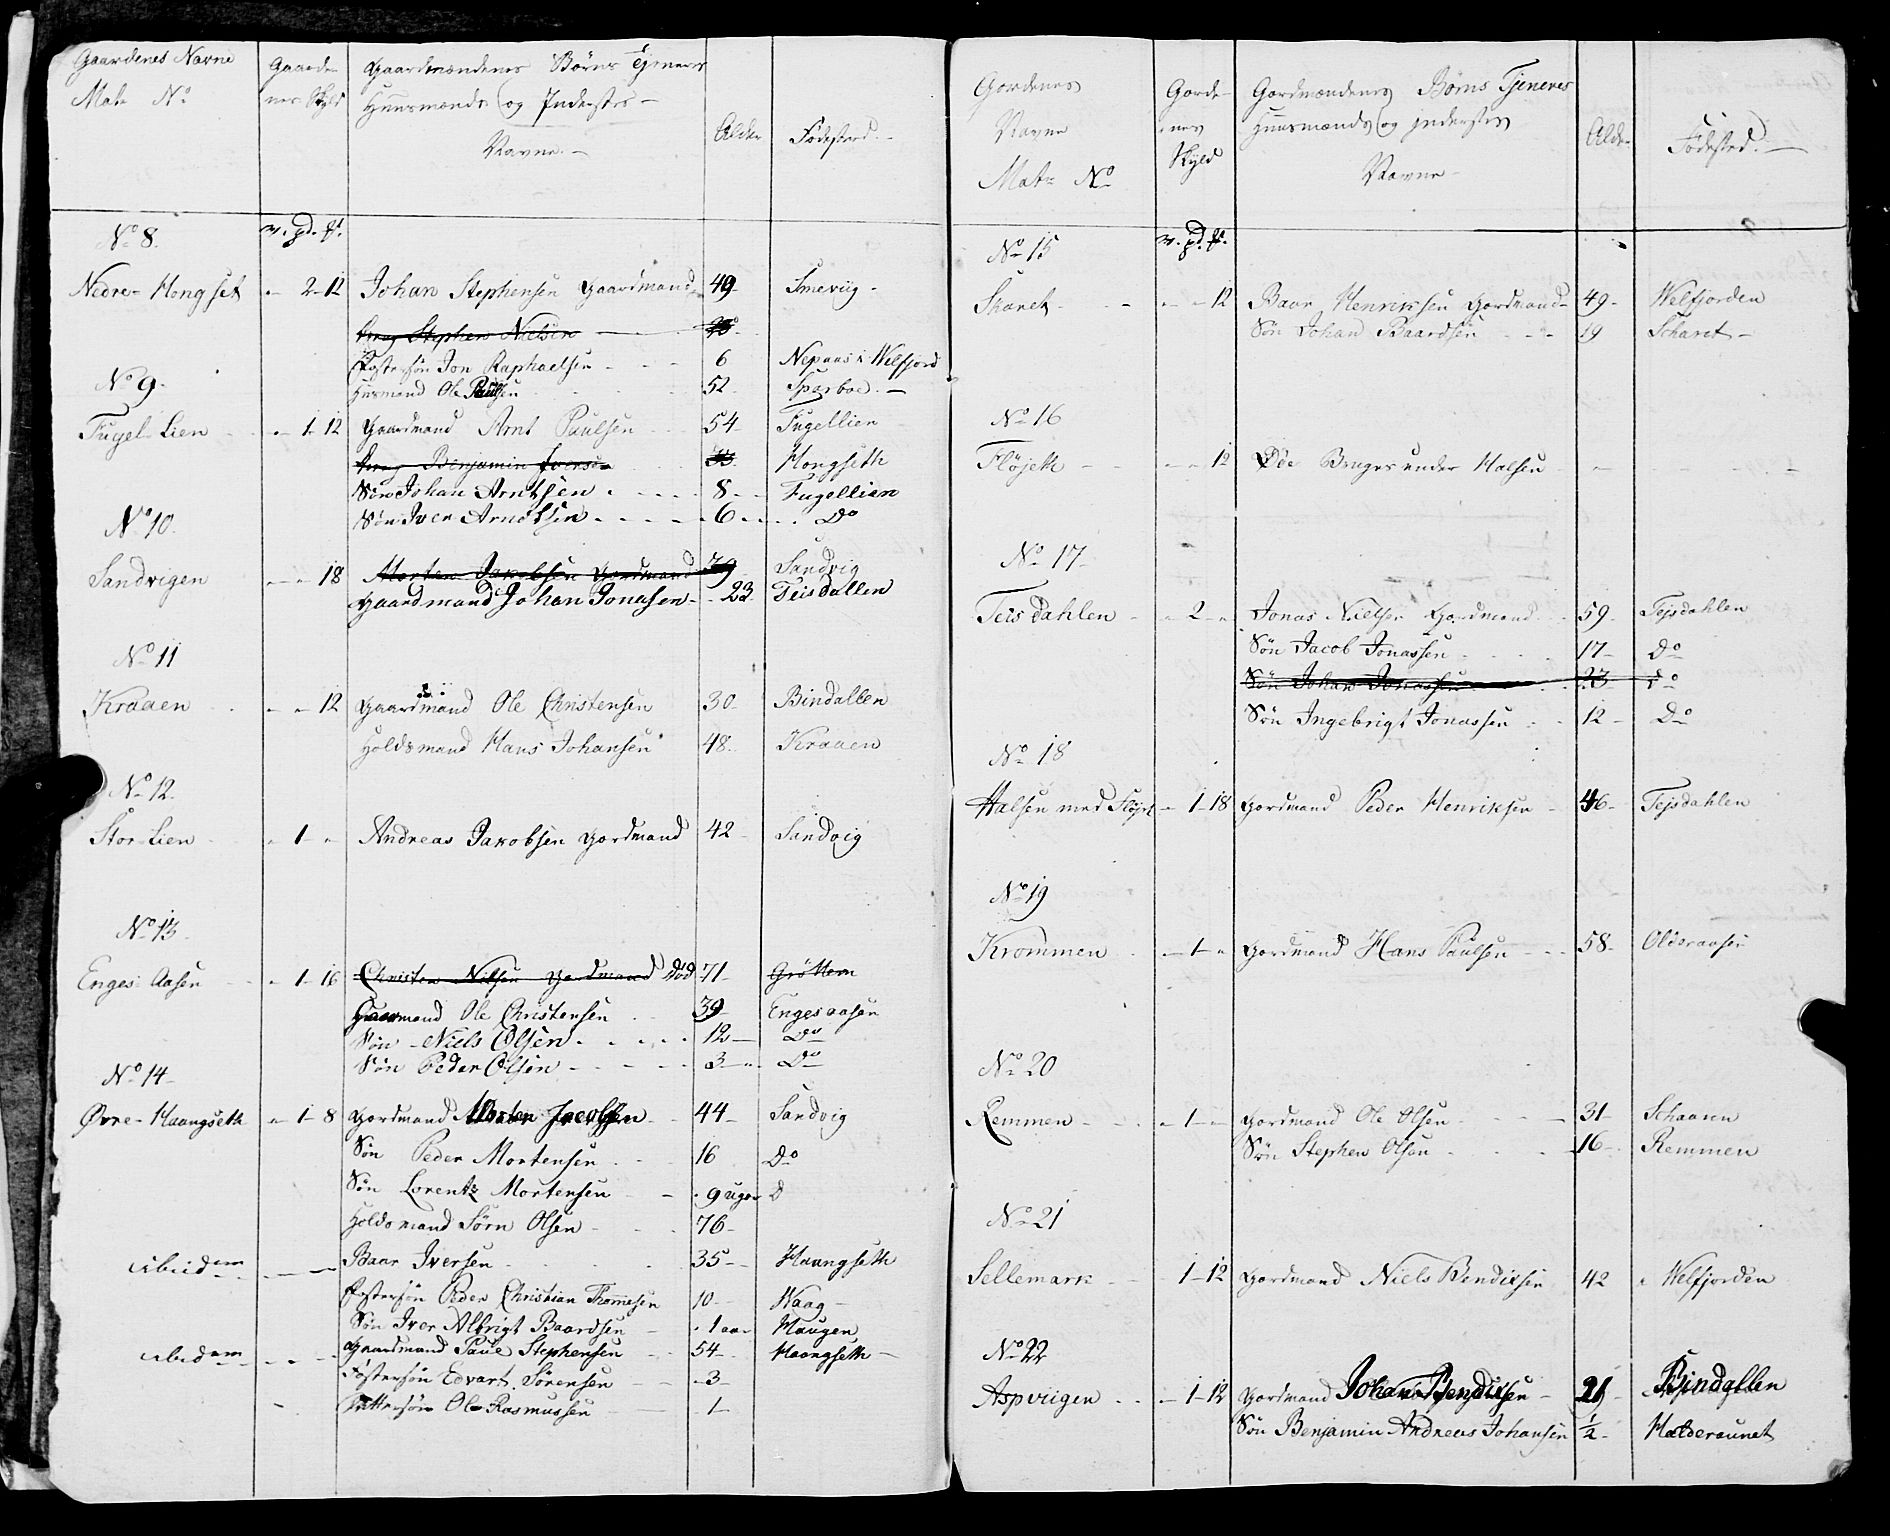 Gaardenes Navne
Mat: No
Gaarde-
nes Skyld
Gaardmændenes Børns Tjeneres
Huusmænds og Inderstes
Navne.
Alder
Fødested.
No 8.
v. pd. ℔.
Nedre-Hongset - 2-12 Johan Stephensen Gaardmand 49 Smeviig
Stephen Nielsen
Fostersøn Jon Raphaelsen 6 Nepaas i Welfjord
No 9.
Husmand Ole Paulsen 52 Sparboe.
Fugel-Lien - 1-12 Gaardmand Arnt Paulsen 54 Fugellien
Benjamin Iversen Hongseth
Søn Johan Arntsen 8 Fugellien
Søn Iver Arntsen 6 Do
No 10.
Sandvigen - - 18 Morten Jakobsen Gordmand 79 Sandvig
Gaardmand Johan Jonasen 23 Teisdallen
No 11
Kraaen - - 12 Gaardmand Ole Christensen 30 Bindallen
Holdsmand Hans Johansen 48 Kraaen
No 12.
Stor-Lien - 1 - Andreas Jakobsen Gordmand 42 Sandvig
No 13.
Enges-Aasen - 1-16 Christen Nilsen Gordmand Död 71 Gröttem
Gaarmand Ole Christensen 39 Engesaasen
Søn Niels Olsen 12 Do
Søn Peder Olsen 3 Do
No 14
Øvre-Haangseth - 1-8 Gordmand Morten Jacobsen 44 Sandvig
Søn Peder Mortensen 16 Do
Søn Lorentz Mortensen 9 uger D
Holdsmand Sörn Olsen 76
ibidem Baar Iversen 35 Haangseth
Fostersøn Peder Christian Thommesen 10 Waag
Søn Iver Albrigt Baardsen 1 aar Haugen
ibidem Gaardmand Paul Stephensen 54 Haangseth
Fostersøn Edvart Sörensen 3
Ole Rasmussen 1
Gordenes
Navne
Mat: No
Gorde-
nes
Skyld
Gordmændenes Børns Tjeneres
Huusmænds og Inderstes
Navne
Alder
Fødested.
No 15
v. pd. ℔.
Skaret - - 12 Baar Henriksen Gordmand 49 Welfjorden
Søn Johan Baardsen 19 Scharet
No 16
Fløjeth - - 12 Øde Bruges under Halsen
No 17
Teisdahlen - 2 - Jonas Nielsen Gordmand 59 Tejsdahlen
Søn Jacob Jonassen 17 Do
Søn Johan Jonassen 23 do
Søn Ingebrigt Jonassen 12 Do
No 18
Halsen med Fløjet - 1-18 Gordmand Peder Henriksen 46 Tejsdahlen
No 19
Krommen - 1 - Gordmand Hans Paulsen 58 Olderaasen
No 20
Remmen - 1 - Gordmand Ole Olsen 31 Schaaren
Søn Stephen Olsen 16 Remmen
No 21
Sellemark 1-12 Gordmand Niels Bendixsen 42 Welfjorden
No 22
Aspviigen - 1-12 Gordmand Johan Bendixsen 21 Bindallen
Søn Benjamin Andreas Johansen ½ Halderaunet